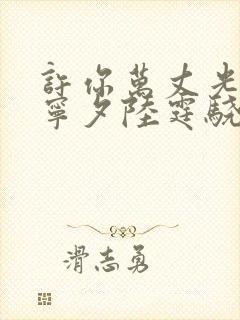 許你萬丈光
寧夕陸霆驍
滑志勇